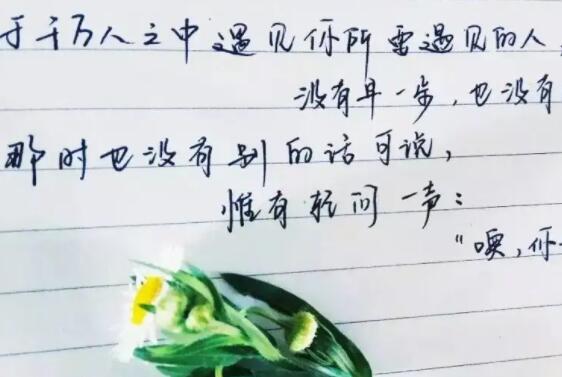 于千万人之中遇见你所要遇见的人,
没有早一步,也没有
那时也没有别的话可说,
惟有轻问一声:
“噢,你